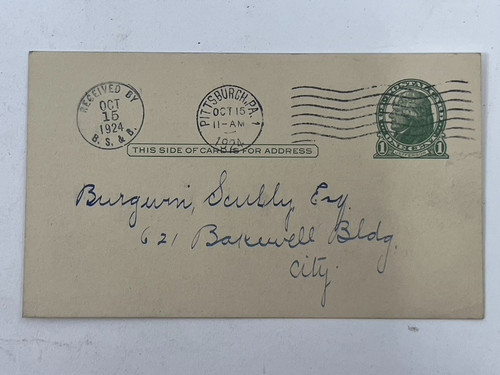 RECEIVED BY
OCT
15
1924
B. S. & B.
PITTSBURGH, PA. 1
OCT 15
11-AM
1924
THIS SIDE OF CARD IS FOR ADDRESS
1 1
Burgwin, Scully, Esq.
621 Bakewell Bldg.
City.